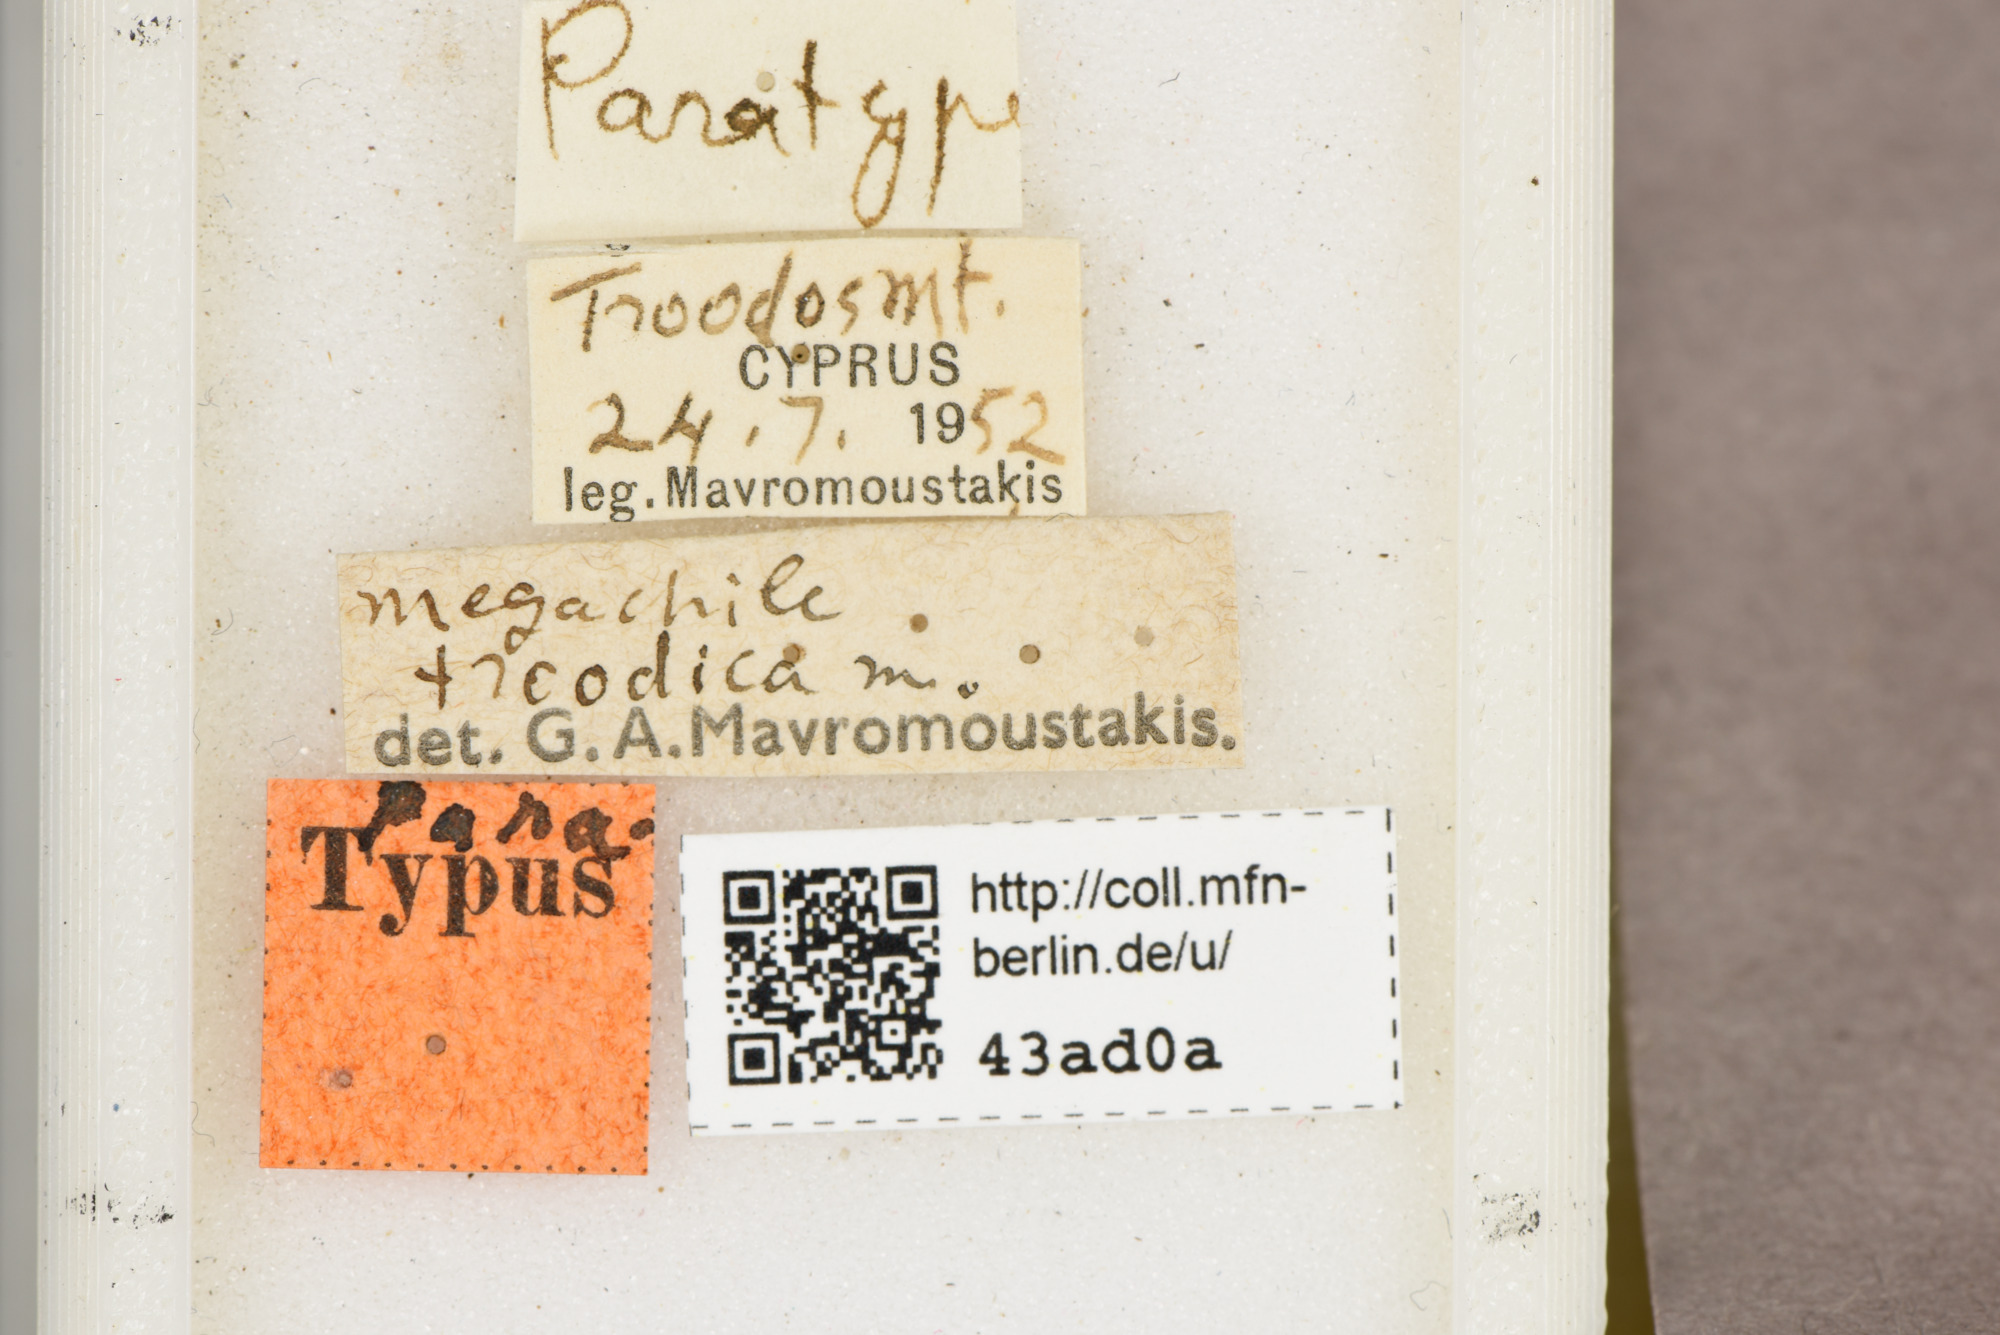 Paratype
Troodos mt.
CYPRUS
24.7. 1952
leg. Mavromoustakis
megachile
troodica m.
det. G. A. Mavromoustakis.
Para-
Typus
http://coll.mfn-
berlin.de/u/
43ad0a